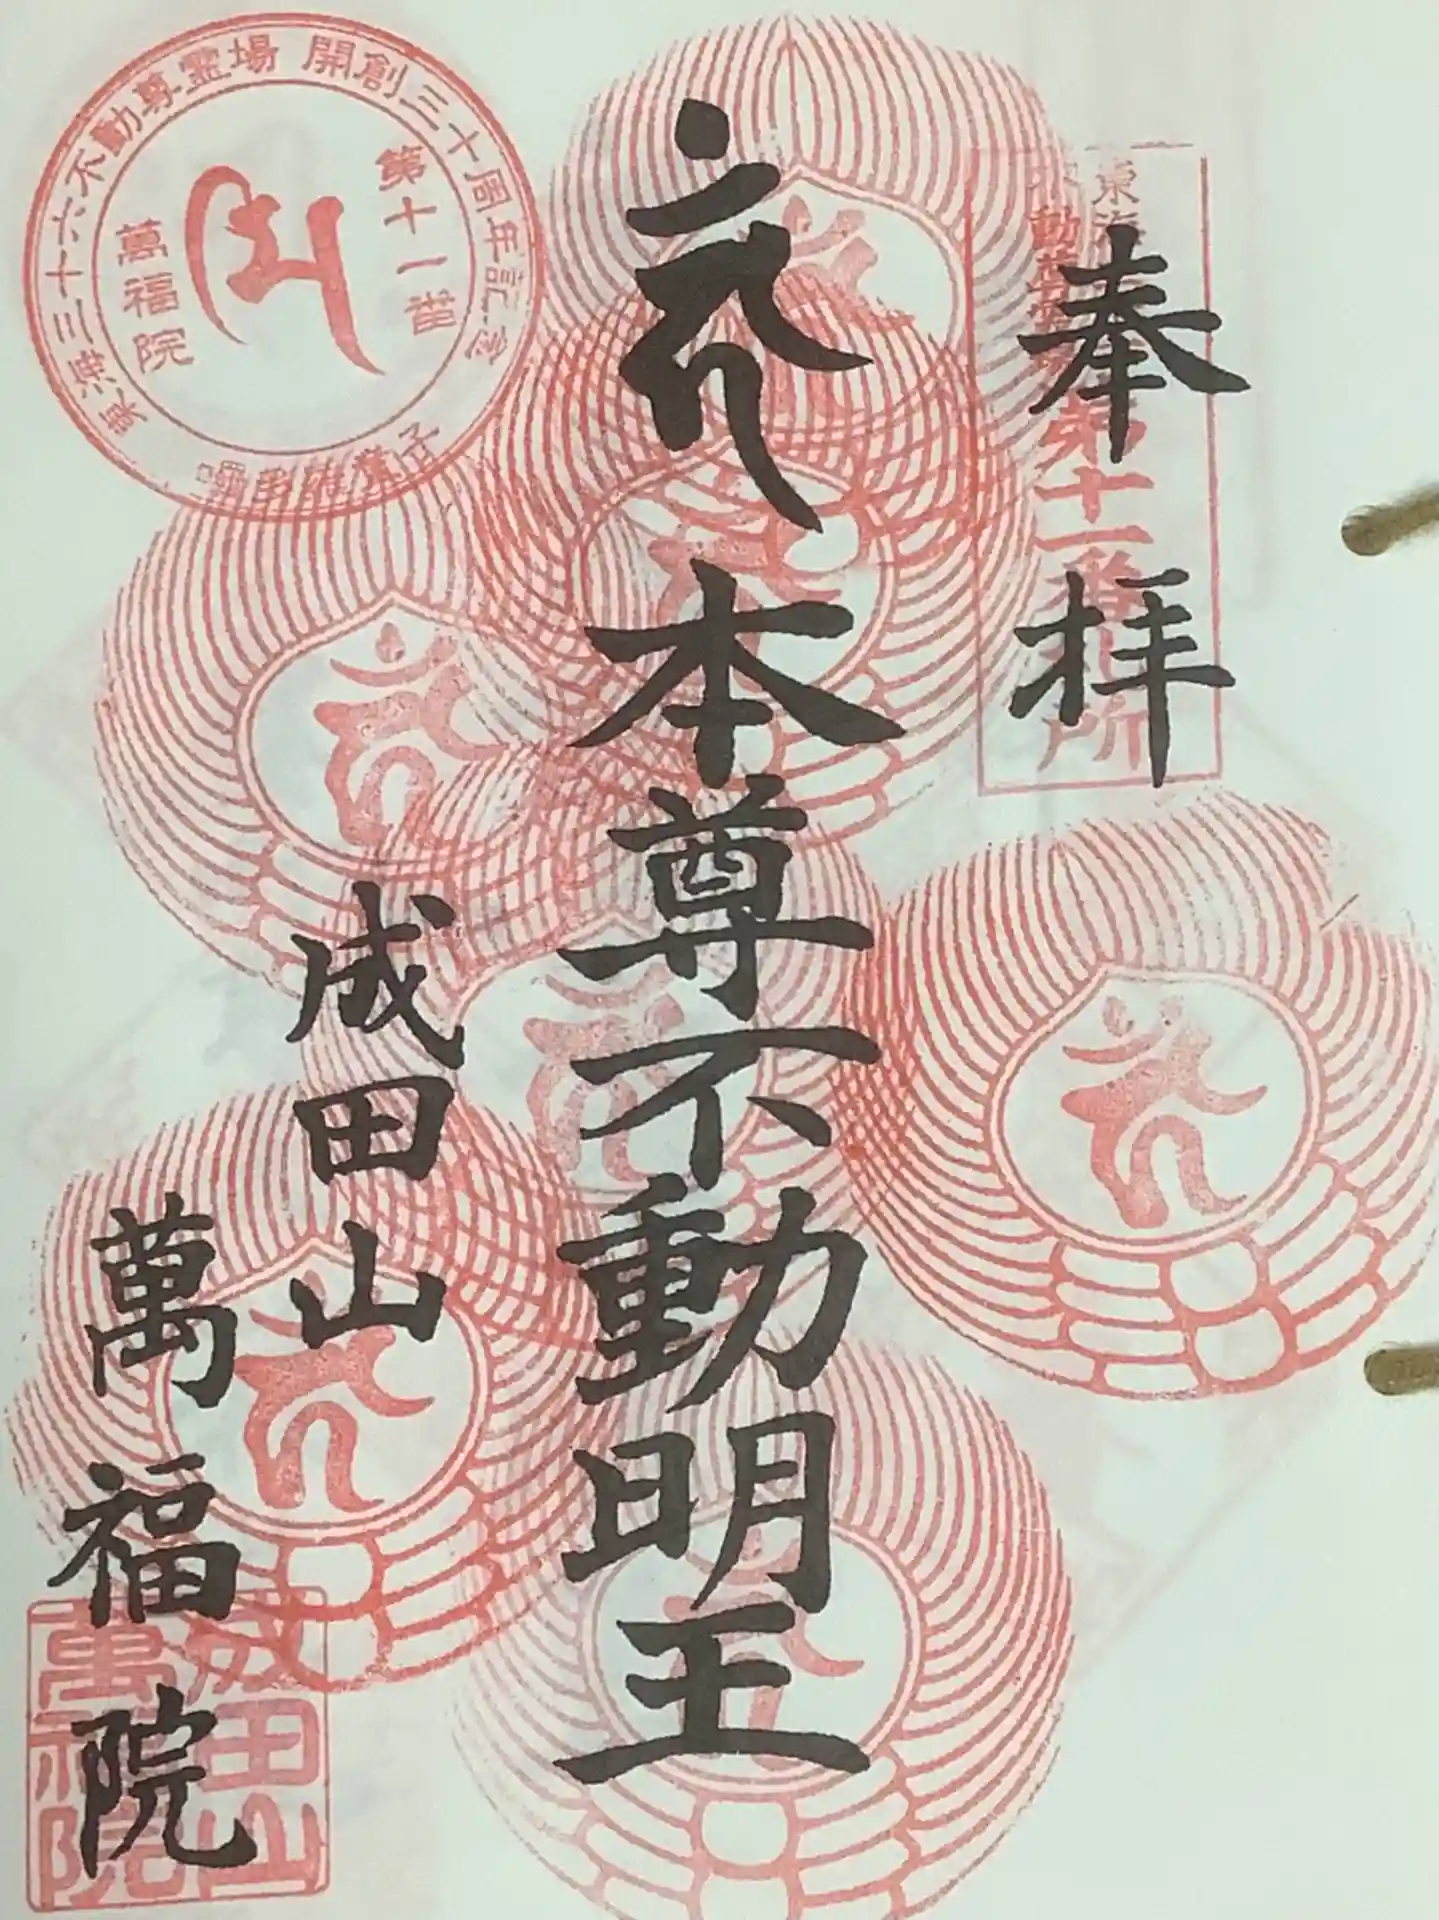 奉拝
東海
第十一番
所
本尊不動明王
成田山
萬福院
東海三十六不動尊霊場 開創三十周年記念
第十一番
萬福院
成田山
萬福院